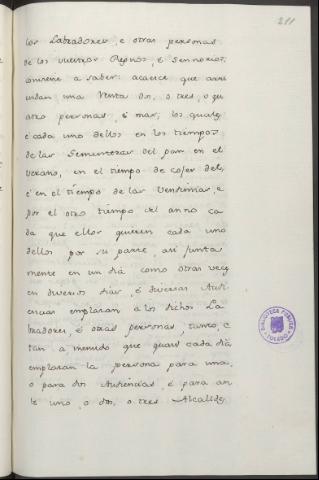 211
los Labradores, e otras personas
de los vuestros Regnos, é Sennorios,
conviene a saber: acaesce que arri
endan una Venta dos, o tres, o qu
atro personas, é mas, los quales
e cada uno dellos en los tiempos
de las Sementeras del pan en el
verano, en el tiempo de cojer dels,
é en el tiempo de las Vendimias, e
por el otro tiempo del anno ca
da que ellos quieren cada uno
dellos por su parte, asi junta
mente en un dia como otras veces
en diversos dias, é diversas Audi
encias emplazan a los dichos La
bradores, é otras personas, tanto, e
tan a menudo que quasi cada dia
emplazan la persona para una,
o para dos Audiencias, é para an
te uno, o dos, o tres Alcaldes
BIBLIOTECA PUBLICA
TOLEDO